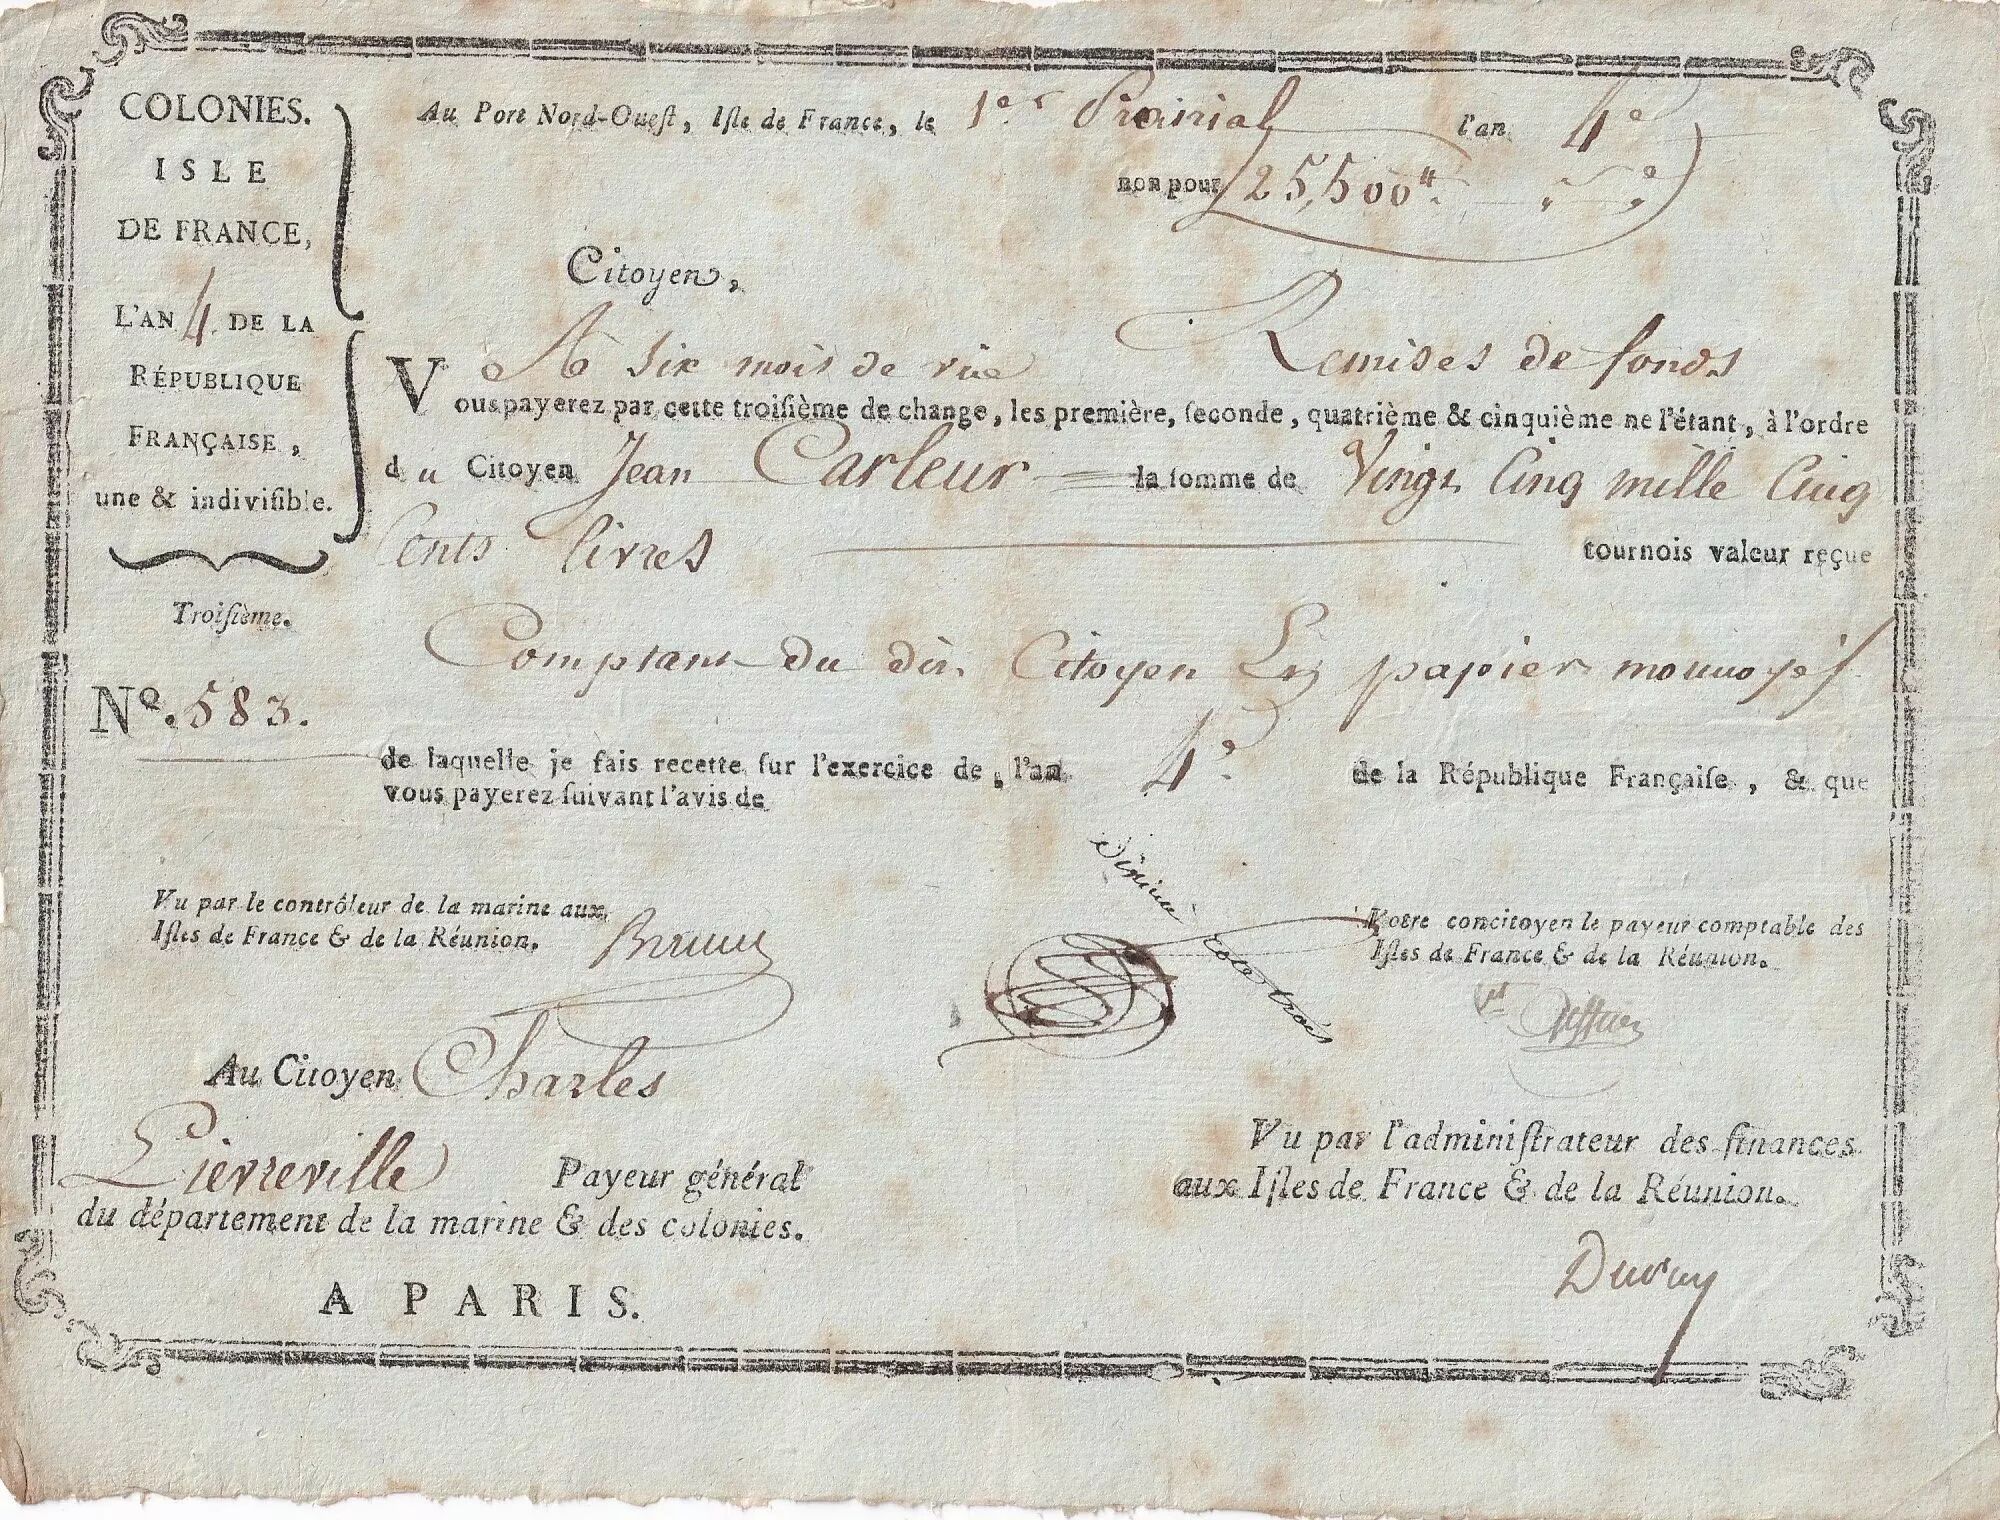 COLONIES.
ISLE
DE FRANCE,
L'AN 4. DE LA
RÉPUBLIQUE
FRANÇAISE,
une & indiviſible.
Troiſième.
Nº. 583.
Au Port Nord-Ouest, Iſle de France, le 1er Prairial l'an 4e
bon pour 25,500
Citoyen,
A six mois de vüe Remises de fonds
Vous payerez par cette troiſième de change, les première, ſeconde, quatrième & cinquième ne l'étant, à l'ordre
du Citoyen Jean Carleur la ſomme de Vingt Cinq mille Cinq
Cents livres tournois valeur reçue
Comptant du dit Citoyen En papier monnoyé
de laquelle je fais recette ſur l'exercice de, l'an 4e de la République Françaiſe, & que
vous payerez ſuivant l'avis de
Vu par le contrôleur de la marine aux
Iſles de France & de la Réunion.
Votre concitoyen le payeur comptable des
Iſles de France & de la Réunion.
Au Citoyen Charles
Pierreville Payeur général
du département de la marine & des colonies.
A PARIS.
Vu par l'adminiſtrateur des finances
aux Iſles de France & de la Réunion.